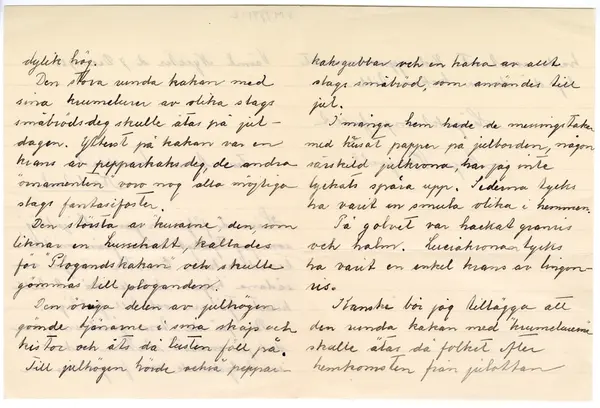 dylik hög.
Den stora runda kakan med
sina krumelurer av olika slags
småbrödsdeg skulle ätas på jul-
dagen. Ytterst på kakan var en
krans av pepparkaksdeg, de andra
ornamenten voro nog alla möjliga
slags fantasifoster.
Den största av kusarne den som
liknar en husschatt, kallades
för Plogandskakan och skulle
gömmas till plöganden.
Den övriga delen av julhögen
gömde tjänarne i sina skåp och
kistor och åts då lusten föll på.
Till julhögen hörde också peppar-
kaksgubbar och en kaka av allt
slags småbröd, som användes till
jul.
I många hem hade de messingstakar
med krusat papper på julborden, någon
särskild julkrona, har jag inte
lyckats spåra upp. Sederna tycks
ha varit en smula olika i hemmen.
På golvet var hackat granris
och halm. Luciakrona tycks
ha varit en enkel krans av lingon-
ris.
Kanske bör jag tillägga att
den runda kakan med krumelurerna
skulle ätas då folket efter
hemkomsten från julottan